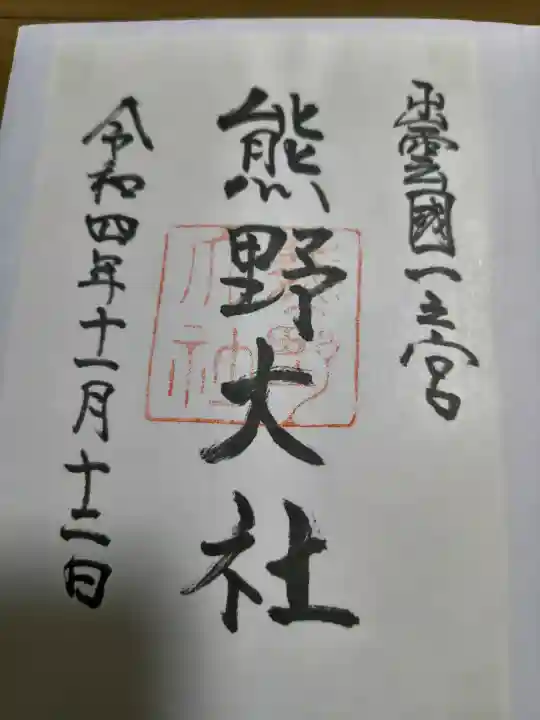 出雲國一之宮
熊野大社
令和四年十一月十二日
熊野大社